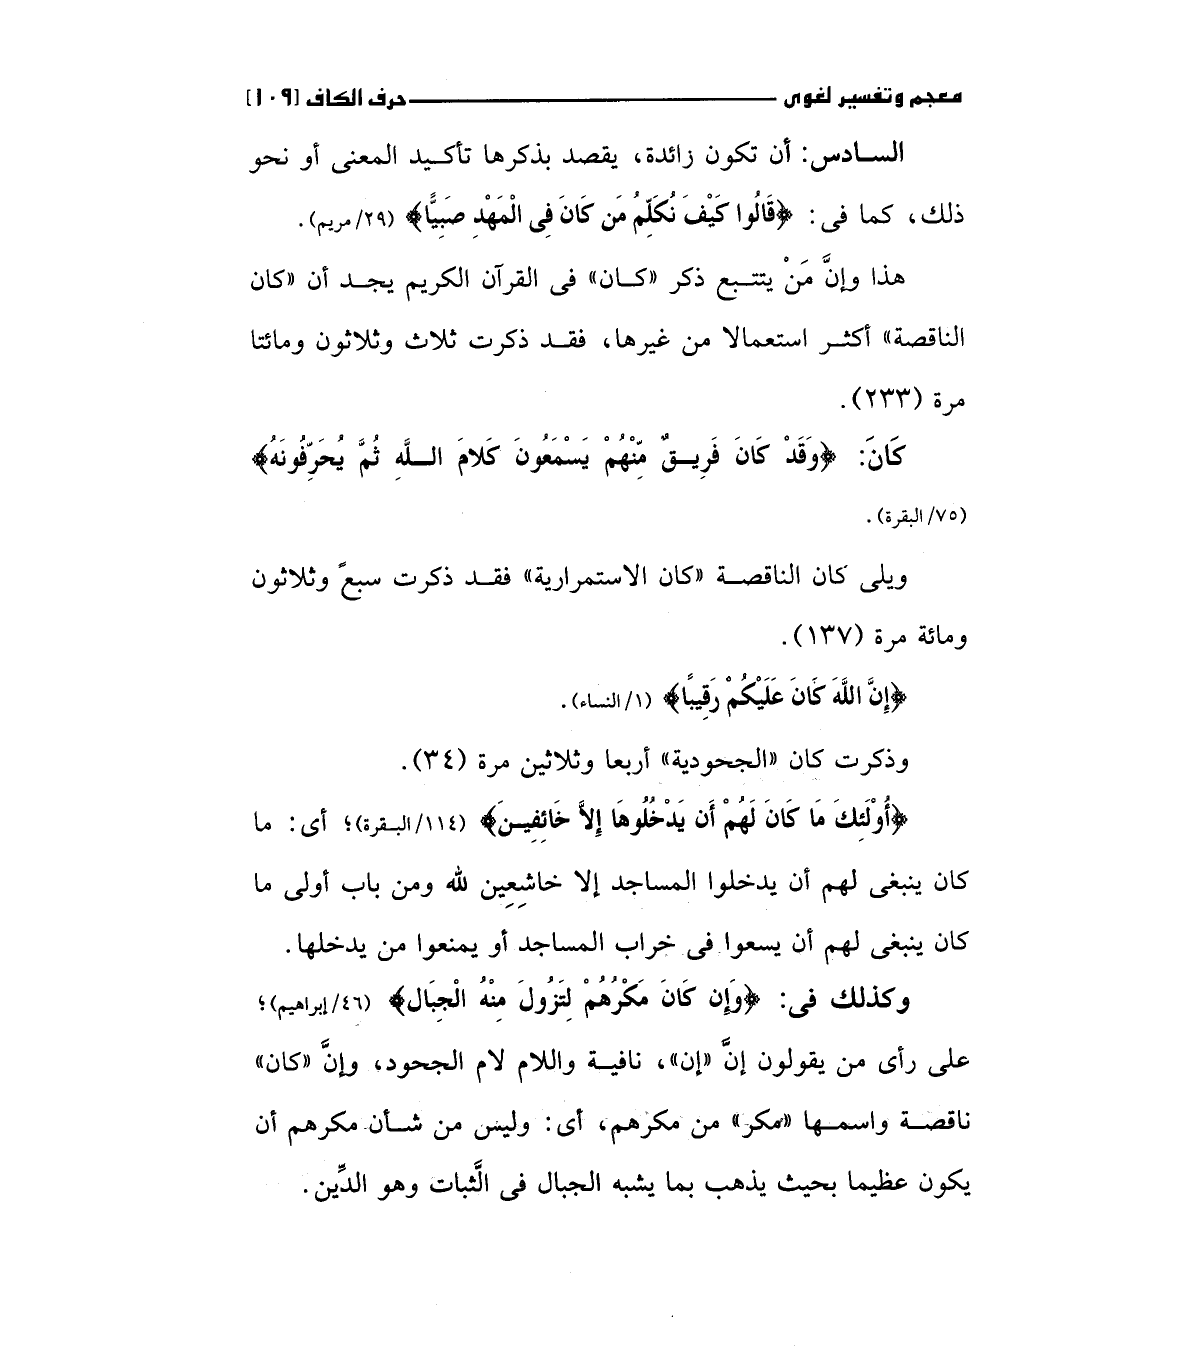 معجم وتفسير لغوى ـــــــ حرف الكاف [١٠٩]
السادس: أن تكون زائدة، يقصد بذكرها تأكيد المعنى أو نحو
ذلك، كما فى: ﴿قَالُوا كَيْفَ نُكَلِّمُ مَن كَانَ فِى الْمَهْدِ صَبِيًّا﴾ (٢٩/ مريم).
هذا وإنَّ مَنْ يتتبع ذكر «كان» فى القرآن الكريم يجد أن «كان
الناقصة» أكثر استعمالا من غيرها، فقد ذكرت ثلاث وثلاثون ومائتا
مرة (٢٣٣).
كَانَ: ﴿وَقَدْ كَانَ فَرِيقٌ مِّنْهُمْ يَسْمَعُونَ كَلامَ اللَّهِ ثُمَّ يُحَرِّفُونَهُ﴾
(٧٥/ البقرة).
ويلى كان الناقصة «كان الاستمرارية» فقد ذكرت سبعً وثلاثون
ومائة مرة (١٣٧).
﴿إِنَّ اللَّهَ كَانَ عَلَيْكُمْ رَقِيبًا﴾ (١/ النساء).
وذكرت كان «الجحودية» أربعا وثلاثين مرة (٣٤).
﴿أُوْلَئِكَ مَا كَانَ لَهُمْ أَن يَدْخُلُوهَا إِلاَّ خَائِفِينَ﴾ (١١٤/ البقرة)؛ أى: ما
كان ينبغى لهم أن يدخلوا المساجد إلا خاشِعِين لله ومن باب أولى ما
كان ينبغى لهم أن يسعوا فى خراب المساجد أو يمنعوا من يدخلها.
وكذلك فى: ﴿وَإِن كَانَ مَكْرُهُمْ لِتَزُولَ مِنْهُ الْجِبَال﴾ (٤٦/ إبراهيم)؛
على رأى من يقولون إنَّ «إن»، نافية واللام لام الجحود، وإنَّ «كان»
ناقصة واسمها «مكر» من مكرهم، أى: وليس من شأن مكرهم أن
يكون عظيما بحيث يذهب بما يشبه الجبال فى الَّثبات وهو الدِّين.